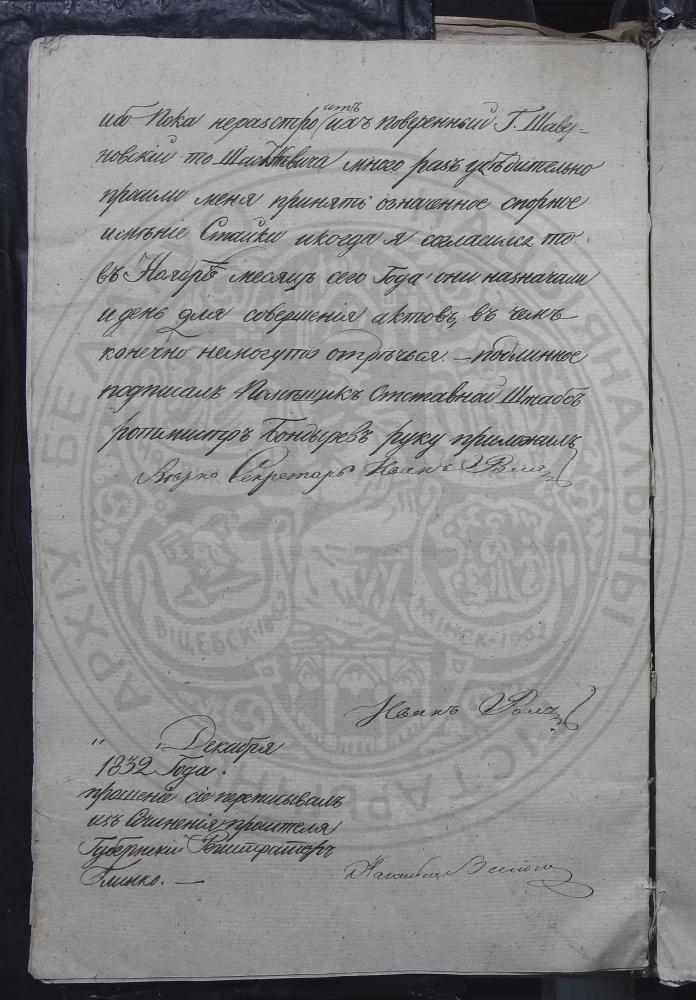 ибо пока неразстроитъ ихъ поверенный Г. Шавер-
новскій то много разъ убѣдительно
просили меня принять означенное спорное
имѣніе Стайки икогда я согласился то
въ Ноябрѣ месяцѣ сего Года они назначали
и день для совершенія актовъ, въ чемъ
конечно немогутъ отрѣчься. – подлинное
подписалъ Помѣщикъ Отставной Штабсъ
ротмистръ Бондыревъ руку приложилъ
Вѣрно Секретарь Иванъ
Иванъ
" " Декабря
1832 Года.
прошеніе сіе переписывалъ
изъ Сочиненія просителя
Губернскій Регистраторъ
Глинко. —
АРХІЎ БЕЛ
ВІЦЕБСК-1862
МІНСК-1